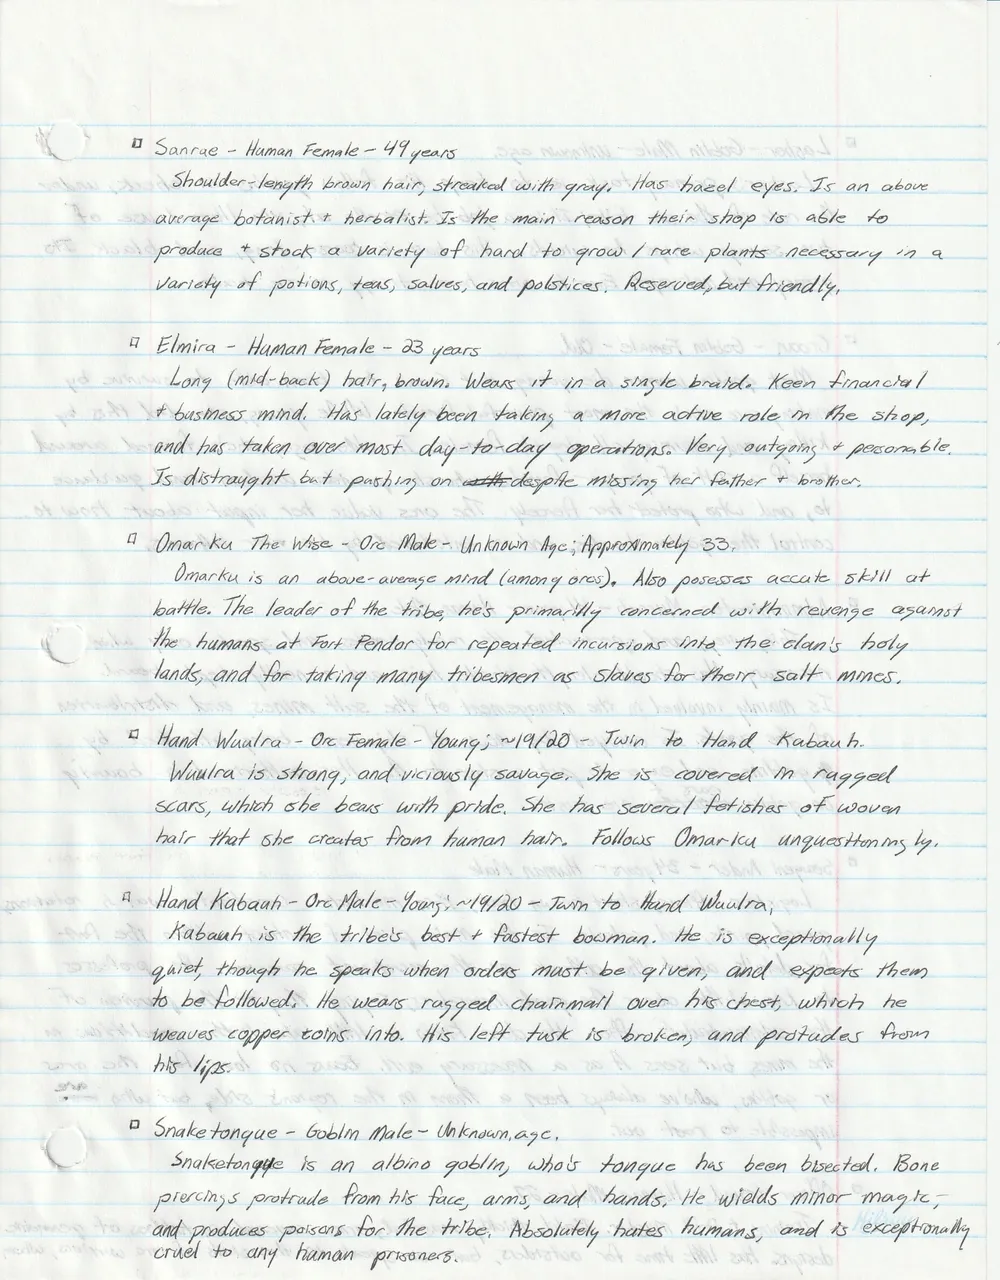 Sanrae - Human Female - 49 years
Shoulder-length brown hair, streaked with gray. Has hazel eyes. Is an above
average botanist + herbalist. Is the main reason their shop is able to
produce + stock a variety of hard to grow / rare plants necessary in a
variety of potions, teas, salves, and polstices. Reserved, but friendly.
Elmira - Human Female - 23 years
Long (mid-back) hair, brown. Wears it in a single braid. Keen financial
+ business mind. Has lately been taking a more active role in the shop,
and has taken over most day-to-day operations. Very outgoing + personable.
Is distraught but pushing on despite missing her father + brother.
Omarku The Wise - Orc Male - Unknown Age; Approximately 33.
Omarku is an above-average mind (among orcs). Also posesses accute skill at
battle. The leader of the tribe, he's primarily concerned with revenge against
the humans at Fort Pendor for repeated incursions into the clan's holy
lands, and for taking many tribesmen as slaves for their salt mines.
Hand Wuulra - Orc Female - Young; ~19/20 - Twin to Hand Kabauh.
Wuulra is strong, and viciously savage. She is covered in ragged
scars, which she bears with pride. She has several fetishes of woven
hair that she creates from human hair. Follows Omarku unquestioningly.
Hand Kabauh - Orc Male - Young; ~19/20 - Twin to Hand Wuulra,
Kabauh is the tribe's best + fastest bowman. He is exceptionally
quiet, though he speaks when orders must be given, and expects them
to be followed. He wears ragged chainmail over his chest, which he
weaves copper coins into. His left tusk is broken, and protudes from
his lips.
Snaketongue - Goblin Male - Unknown, age.
Snaketongue is an albino goblin, who's tongue has been bisected. Bone
piercings protrude from his face, arms, and hands. He wields minor magic,
and produces poisons for the tribe. Absolutely hates humans, and is exceptionally
cruel to any human prisoners.